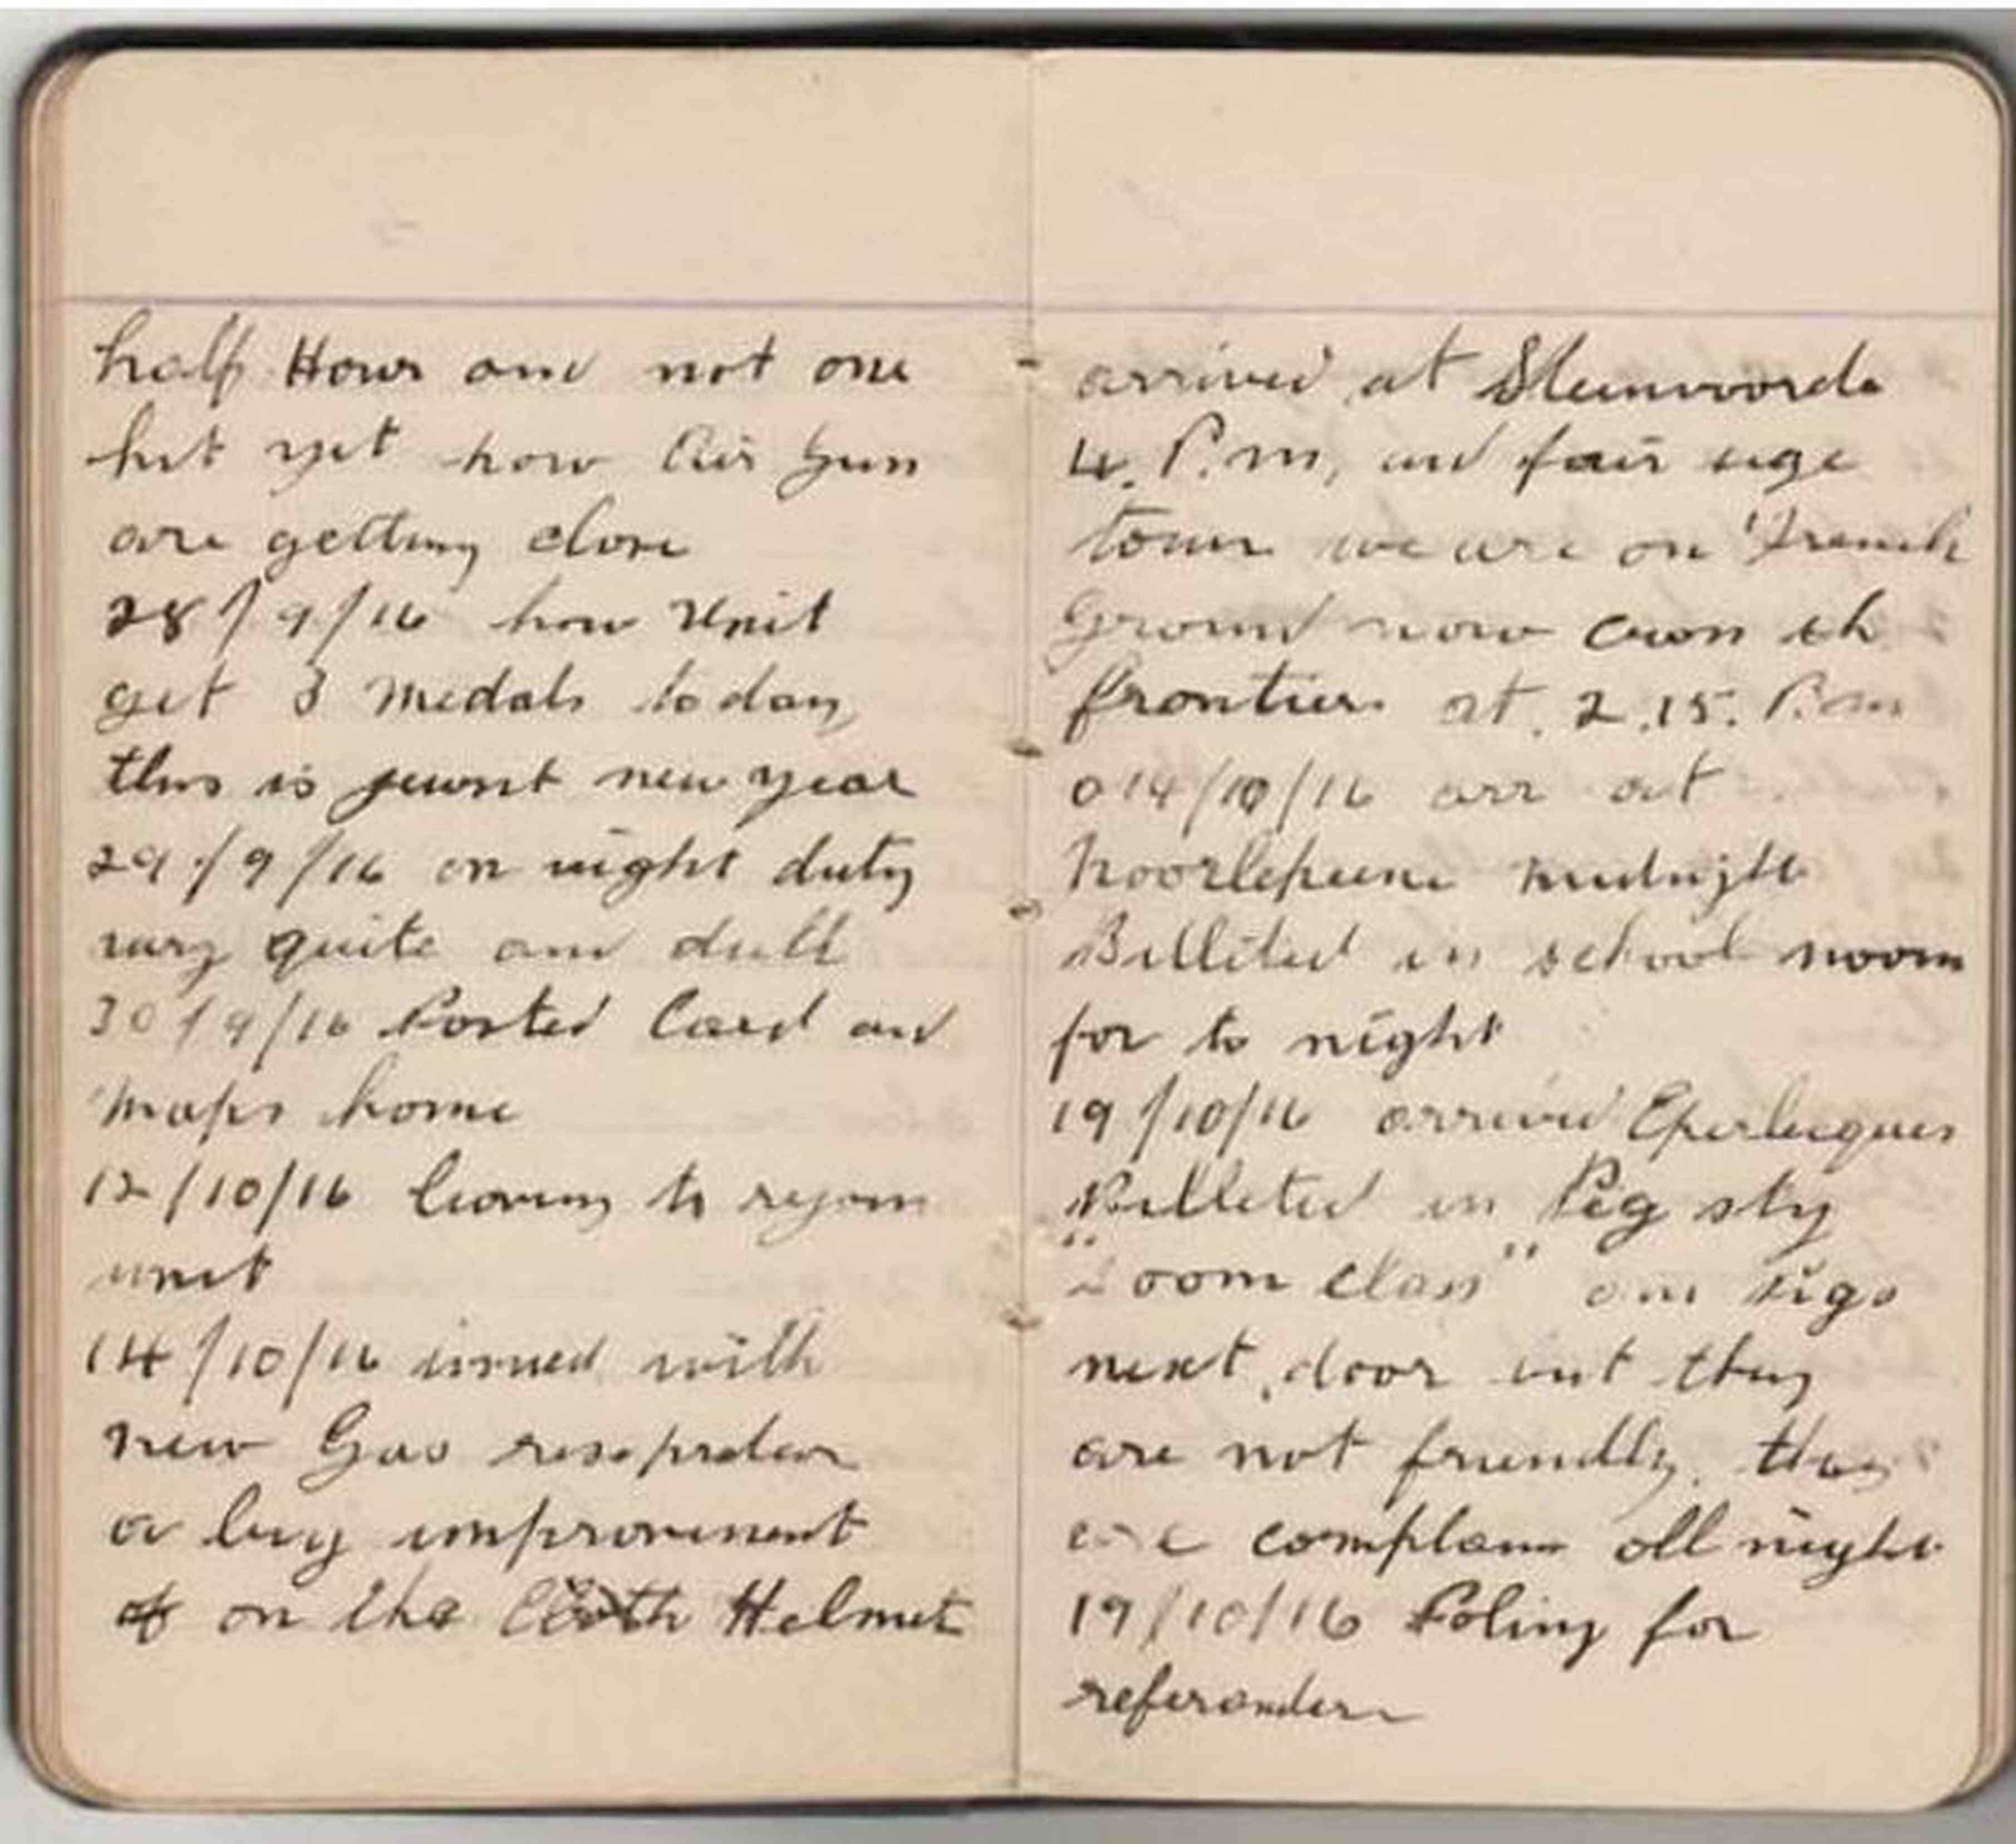 half Hour and not one
hit yet how Air Gun
are getting close
28/9/16 how Unit
get 3 medals today
this is jewist new year
29/9/16 on night duty
vary quite and dull
30/9/16 Posted Card and
maps home
12/10/16 leaving to rejoin
unit
14/10/16 issued with
new Gas
a big improvement
of on the Cloth Helmet
arrived at Steenvoorde
4. P.m, and fair
town we are on French
Ground now
frontier at. 2.15. P.m
14/10/16 arr at
Noorlepeene midnight
Billited in school room
for to night
19/10/16 arrived Eperlecques
Billeted in Pig sty
oom class" pigs
next door but they
are not friendly. they
are complain all night
19/10/16 Poling for
referander